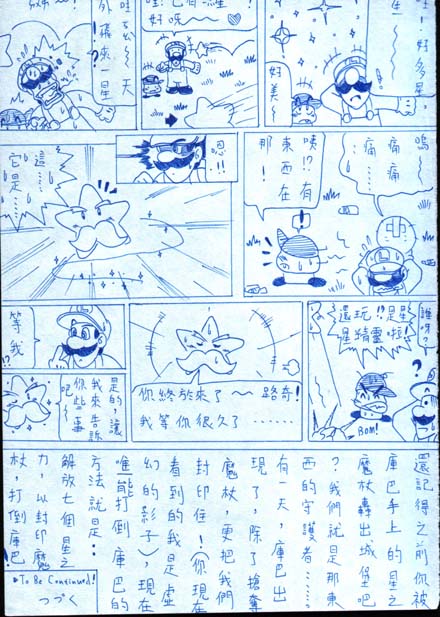 哇!好多星
好美~
好呀~~♡
哇
天
外飛來一星
!?
嗚~
痛痛
痛……
咦!?有
東西在
那!
恩!!
這……
它是……
誰呀?
還玩!!是星
星精靈啦!
?
BOM!
你終於來了~路奇!
我等你很久了……
等我!?
是的,讓
我來告訴
你些事
吧~
還記得之前你被
庫巴手上的星之
魔杖轟出城堡吧
?我們就是那東
西的守護者……
有一天,庫巴出
現了,除了搶奪
魔杖,更把我們
封印住!(你現在
看到的我是虛
幻的影子),現在
唯能打倒庫巴的
方法就是:
解放七個星之
力以封印魔
杖,打倒庫巴!
To Be Continued!
つづく